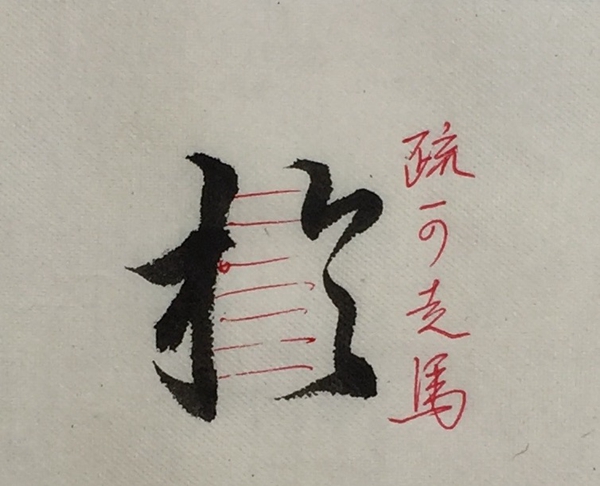 於
疏可走馬